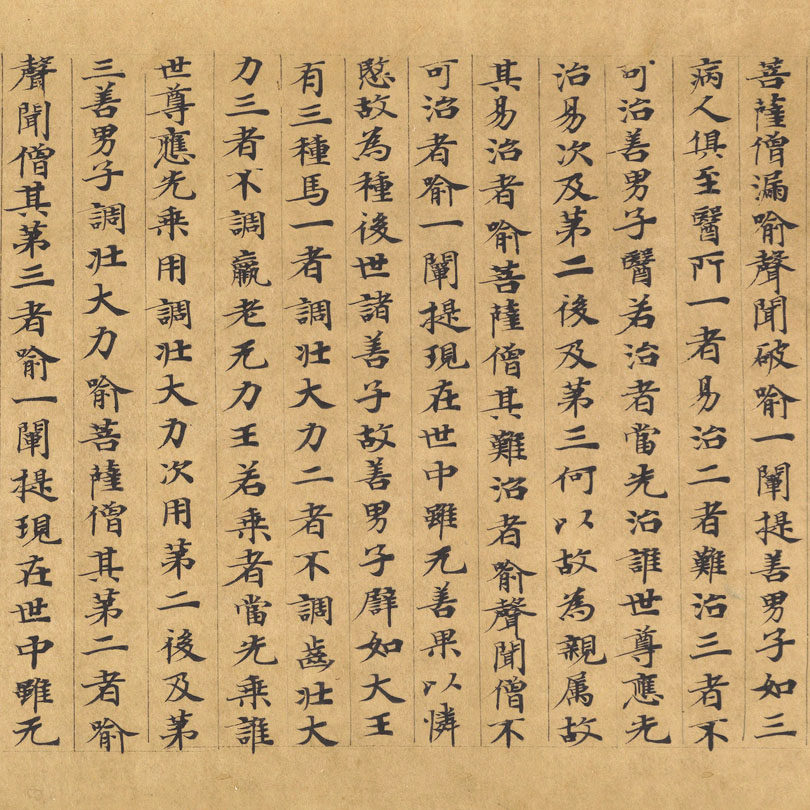 菩薩僧漏喻聲聞破喻一闡提善男子如三
病人俱至醫所一者易治二者難治三者不
可治善男子醫若治者當先治誰世尊應先
治易次及第二後及第三何以故為親属故
其易治者喻菩薩僧其難治者喻聲聞僧不
可治者喻一闡提現在世中雖无善果以憐
愍故為種後世諸善子故善男子譬如大王
有三種馬一者調壯大力二者不調齒壯大
力三者不調羸老无力王若乘者當先乘誰
世尊應先乘用調壯大力次用第二後及第
三善男子調壯大力喻菩薩僧其第二者喻
聲聞僧其第三者喻一闡提現在世中雖无